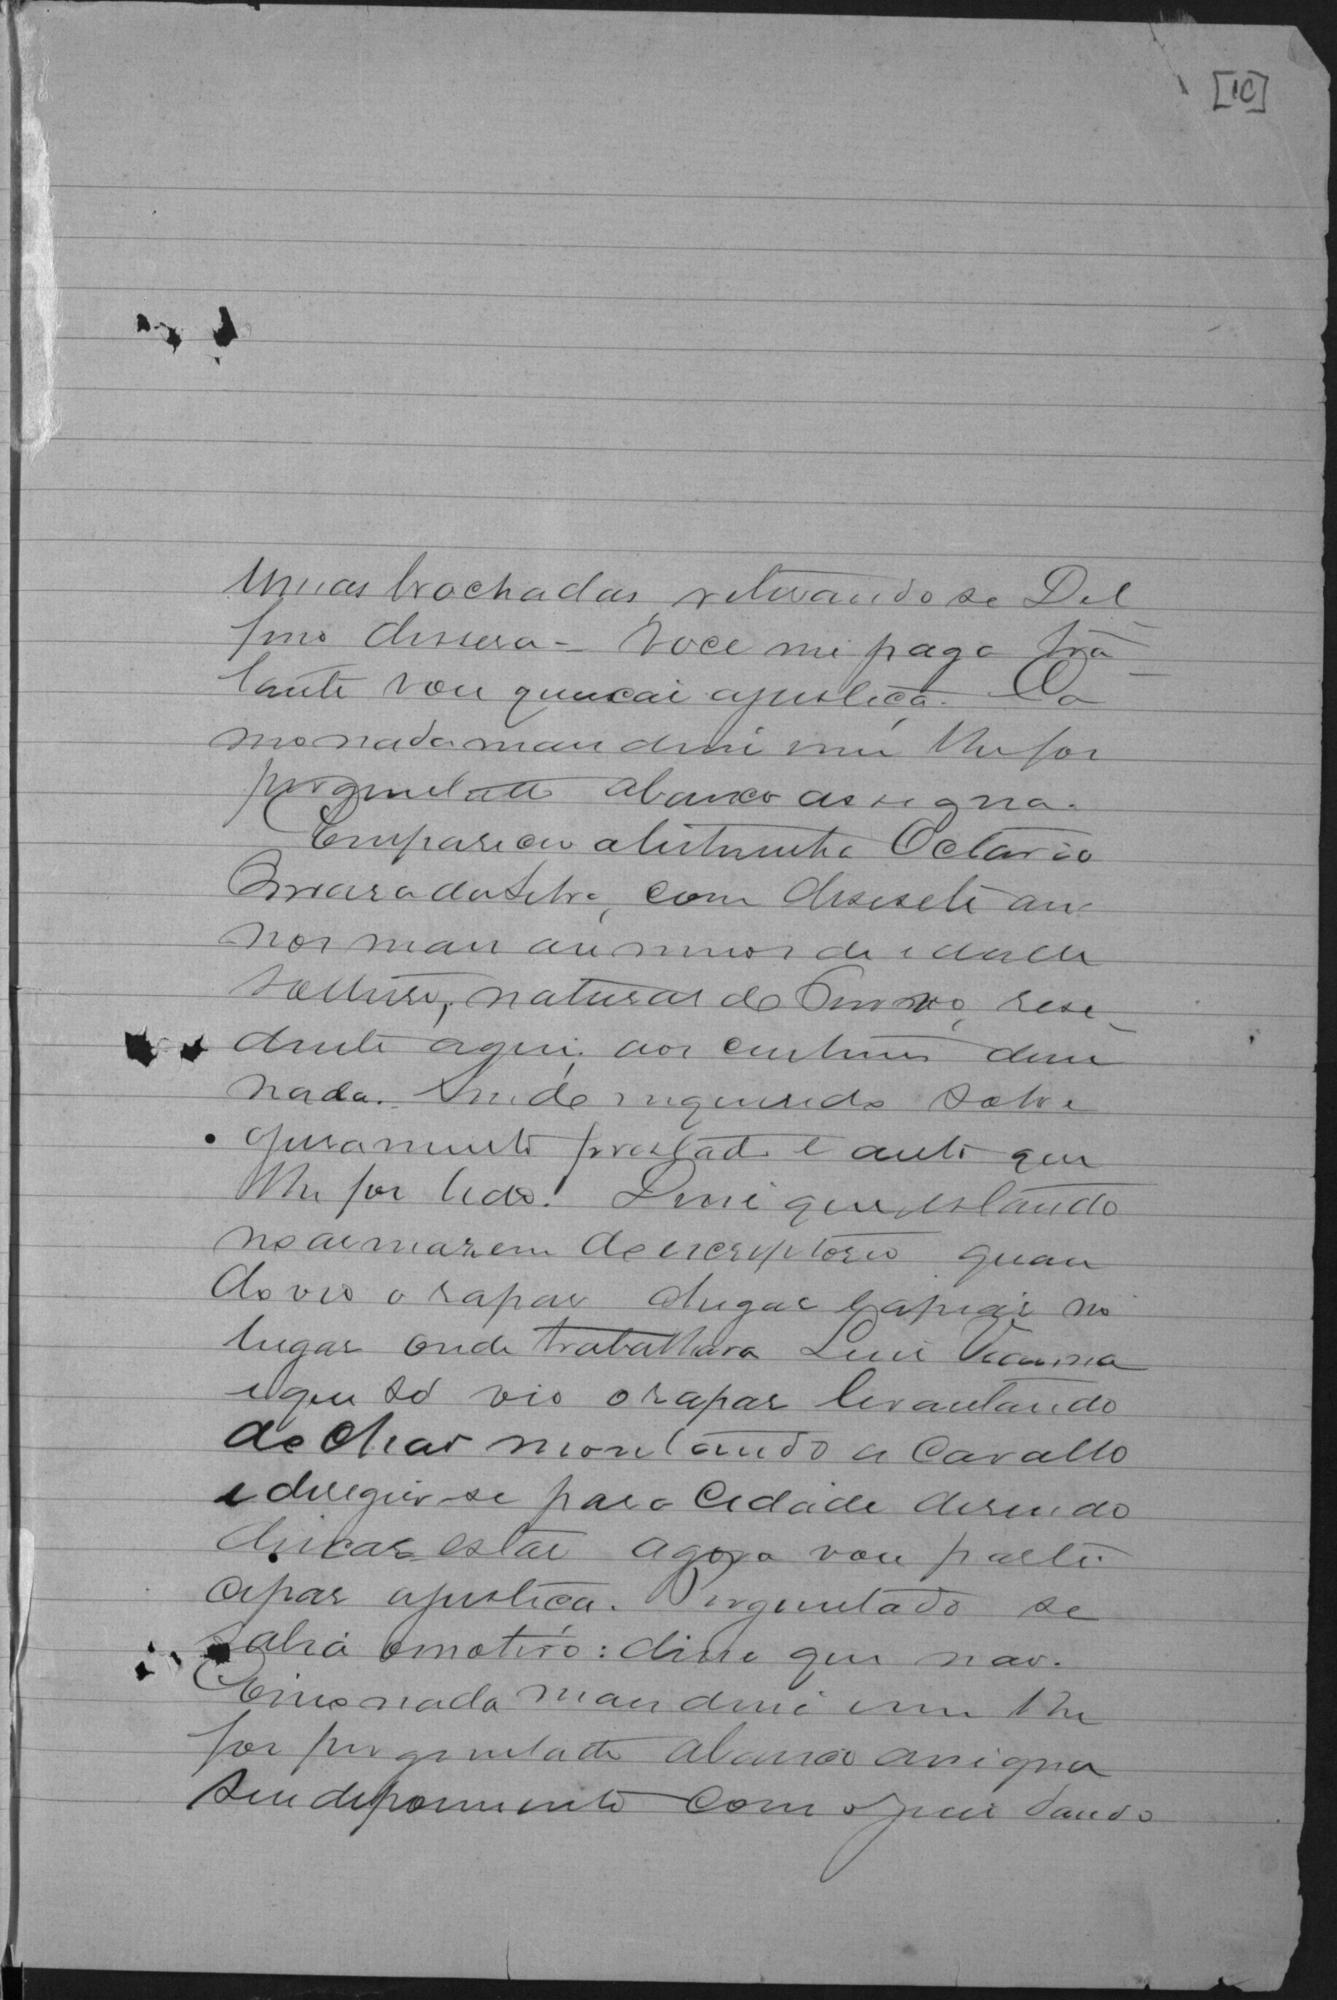 [10]
umas brochadas, retirando se Del
fino dissera - Voce mi paga tra
tante vou queixar a justica. Co
mo nada mais disse nem lhe foi
perguntado abaixo assigna.
Compareceu a testimunha Octavio
da Silva, com desesete an
nos mais ou menos de idade
solteiro, natural do resi
dente aqui, aos custumes disse
nada. Sendo inquirido sobre
o juramento prestado e auto que
lhe foi lido. Disse que estando
no armazem do escriptorio quan
do vio o rapaz chegar e apeiar no
lugar onde trabalhava Luis Vianna
e que só vio o rapaz levantando
do chão montando a cavallo
e diregiu-se para cidade disendo
deixar estar agora vou parti
cipar a justica. Perguntado se
sabia o motivo: disse que não.
Como nada mais disse nem lhe
foi perguntado abaixo assigna
seu depoimento com o Juiz dando